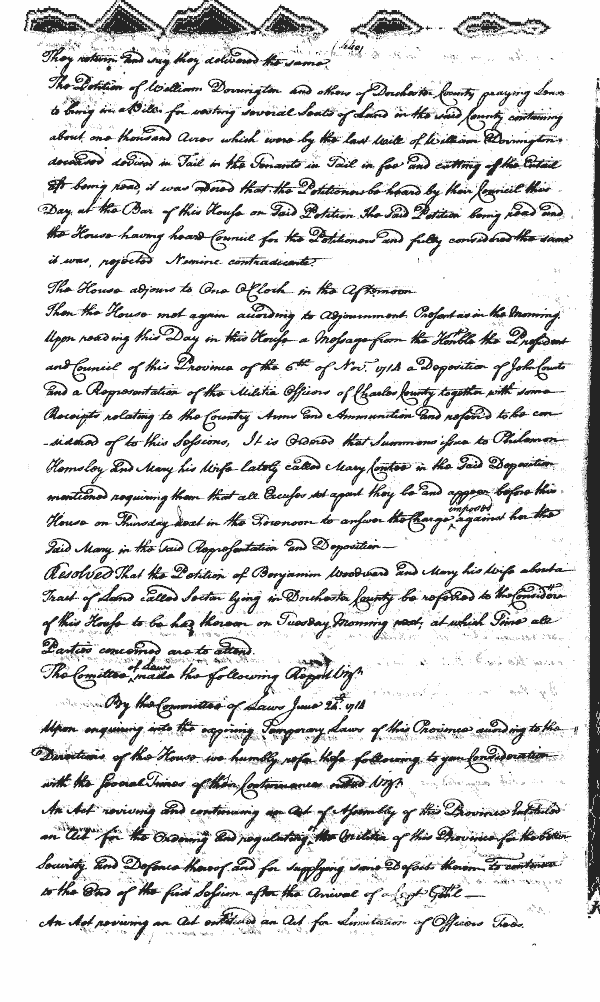 (440)
They return and say they delivered the same.
The Petition of William Dorrington and others of Dorchester County praying Leave
to bring in a Bill for vesting several Seats of Land in the said County containing
about one thousand Acres which were by the last Will of William Dorrington
deceased devised in Tail in the Tenants in Tail in fee and cutting off the Entail
&ct. being read, it was ordered that the Petitioners be heard by their Council this
Day at the Bar of this House on said Petition. The said Petition being read and
the House having heard Council for the Petitioners and fully considered the same
it was rejected Nemine contradicente.
The House adjourns to One O'Clock in the Afternoon
Then the House met again according to Adjournment. Present as in the Morning.
Upon reading this Day in this House a Message from the Honble the President
and Council of this Province of the 6th of Novr. 1714 a Deposition of John
and a Representation of the Militia Officers of Charles County together with some
Receipts relating to the Country Arms and Ammunition and referr'd to be con
-sidered of to this Sessions, It is Ordered that Summons issue to Philemon
Hemsley and Mary his Wife lately called Mary Contee in the said Deposition
mentioned requiring them that all Excuses set apart they be and appear before this
House on Thursday next in the Forenoon to answer the Charge imposed against her the
said Mary in the said Representation and Deposition—
Resolved That the Petition of Benjamin Woodward and Mary his Wife about a
Tract of Land called Sector lying in Dorchester County be referred to the Consideracn
of this House to be had thereon on Tuesday Morning next, at which Time all
Parties concerned are to attend.
The Comittee of Laws made the following Report Vizt.
By the Committee of Laws June 24th 1714
Upon enquiring into the expiring Temporary Laws of this Province according to the
Directions of the House we humbly refer these following to your Consideration
with the several Times of their Continuances noted Vizt.
An Act reviving and continuing an Act of Assembly of this Province Entituled
an Act for the Ordering and regulating the Militia of this Province for the better
Security and Defence thereof and for supplying some Defects therein to continue
to the End of the first Session after the Arrival of a Capt. Genl—
An Act reviving an Act entituled an Act for Limitation of Officers Fees.